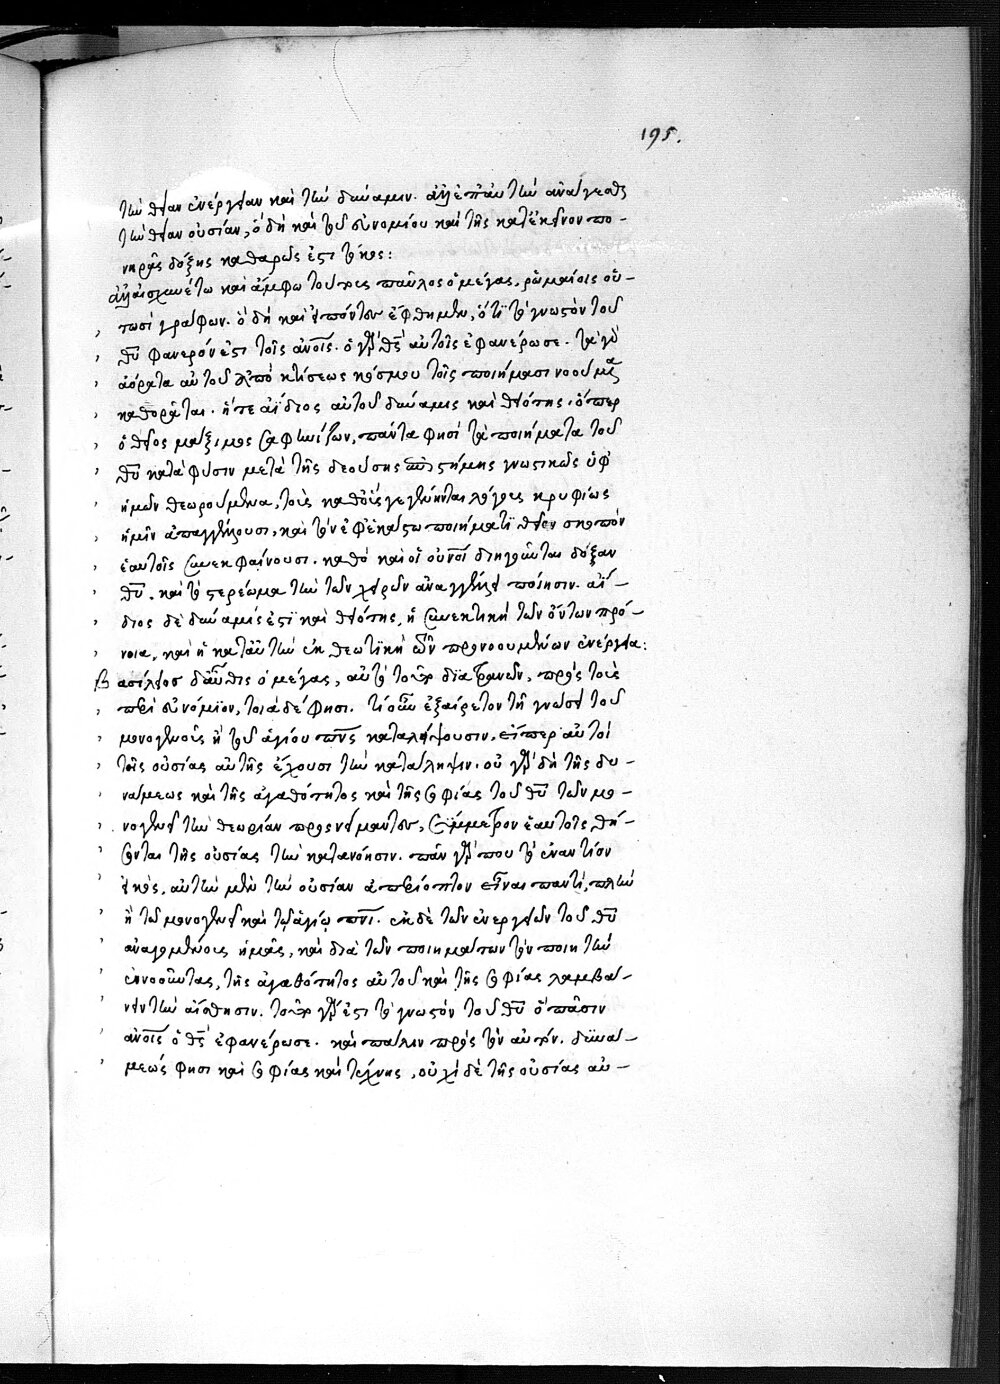 195.
τὴν θείαν ἐνέργειαν καὶ τὴν δύναμιν. ἀλλ' ἐπ' αὐτὴν ἀνάγεσθαι
τὴν θείαν οὐσίαν, ὃ δὴ καὶ τοῦ εὐνομίου καὶ τῆς κατ' ἐκεῖνον πο-
νηρᾶς δόξης καθαρῶς ἐστι τόκος:
ἀλλ' αἰσχυνέτω καὶ ἄμφω τούτους παῦλος ὁ μέγας, ῥωμαίοις οὑ-
τωσὶ γράφων. ὃ δὴ καὶ εἰπόντες ἔφθημεν, ὅτι τὸ γνωστὸν τοῦ
θυ φανερόν ἐστι τοῖς ἀνοις. ὁ γὰρ θς αὐτοῖς ἐφανέρωσε. τὰ γὰρ
ἀόρατα αὐτοῦ ἀπὸ κτίσεως κόσμου τοῖς ποιήμασι νοούμενα
καθορᾶται. ἥ τε ἀΐδιος αὐτοῦ δύναμις καὶ θειότης. ὅπερ
ὁ θεῖος μάξιμος σαφηνίζων, πάντα φησὶ τὰ ποιήματα τοῦ
θυ κατὰ φύσιν μετὰ τῆς δεούσης ἐπιστήμης γνωστικῶς ὑφ'
ἡμῶν θεωρούμενα, τοὺς καθ' οὓς γεγένηνται λόγους κρυφίως
ἡμῖν ἀπαγγέλλουσι, καὶ τὸν ἐφ' ἑκάστῳ ποιήματι θεῖον σκοπὸν
ἑαυτοῖς συνεκφαίνουσι. καθὸ καὶ οἱ οὐνοὶ διηγοῦνται δόξαν
θυ. καὶ τὸ στερέωμα τὴν τῶν χειρῶν ἀναγγέλλει ποίησιν. ἀΐ-
διος δὲ δύναμίς ἐστι καὶ θειότης, ἡ συνεκτικὴ τῶν ὄντων πρό-
νοια, καὶ ἡ κατ' αὐτὴν ἐκθεωτικὴ τῶν προνοουμένων ἐνέργεια:
βασίλειος δ' αὖθις ὁ μέγας, αὐτὸ τοῦτο διατρανῶν, πρὸς τοὺς
περὶ εὐνόμιον, τοιάδέ φησι. τί οὖν ἐξαίρετον τῇ γνώσει τοῦ
μονογενοῦς ἢ τοῦ ἁγίου πνς καταλείψουσιν, εἴπερ αὐτοὶ
τῆς οὐσίας αὐτῆς ἔχουσι τὴν κατάληψιν. οὐ γὰρ δὴ τῆς δυ-
νάμεως καὶ τῆς ἀγαθότητος καὶ τῆς σοφίας τοῦ θυ τῷ μο-
νογενεῖ τὴν θεωρίαν προσνείμαντες, σύμμετρον ἑαυτοῖς θή-
σονται τῆς οὐσίας τὴν κατανόησιν. πᾶν γάρ που τὸ ἐναντίον
εἰκός, αὐτὴν μὲν τὴν οὐσίαν ἀπερίοπτον εἶναι παντὶ, πλὴν
ἢ τῷ μονογενεῖ καὶ τῷ ἁγίῳ πνι. ἐκ δὲ τῶν ἐνεργειῶν τοῦ θυ
ἀναγομένους ἡμᾶς, καὶ διὰ τῶν ποιημάτων τὸν ποιητὴν
ἐννοοῦντας, τῆς ἀγαθότητος αὐτοῦ καὶ τῆς σοφίας λαμβά-
νειν τὴν αἴσθησιν. τοῦτο γάρ ἐστι τὸ γνωστὸν τοῦ θυ ὃ πᾶσιν
ἀνοις ὁ θς ἐφανέρωσε. καὶ πάλιν πρὸς τὸν αὐτόν. δυνά-
μεώς φησι καὶ σοφίας καὶ τέχνης, οὐχὶ δὲ τῆς οὐσίας αὐ-